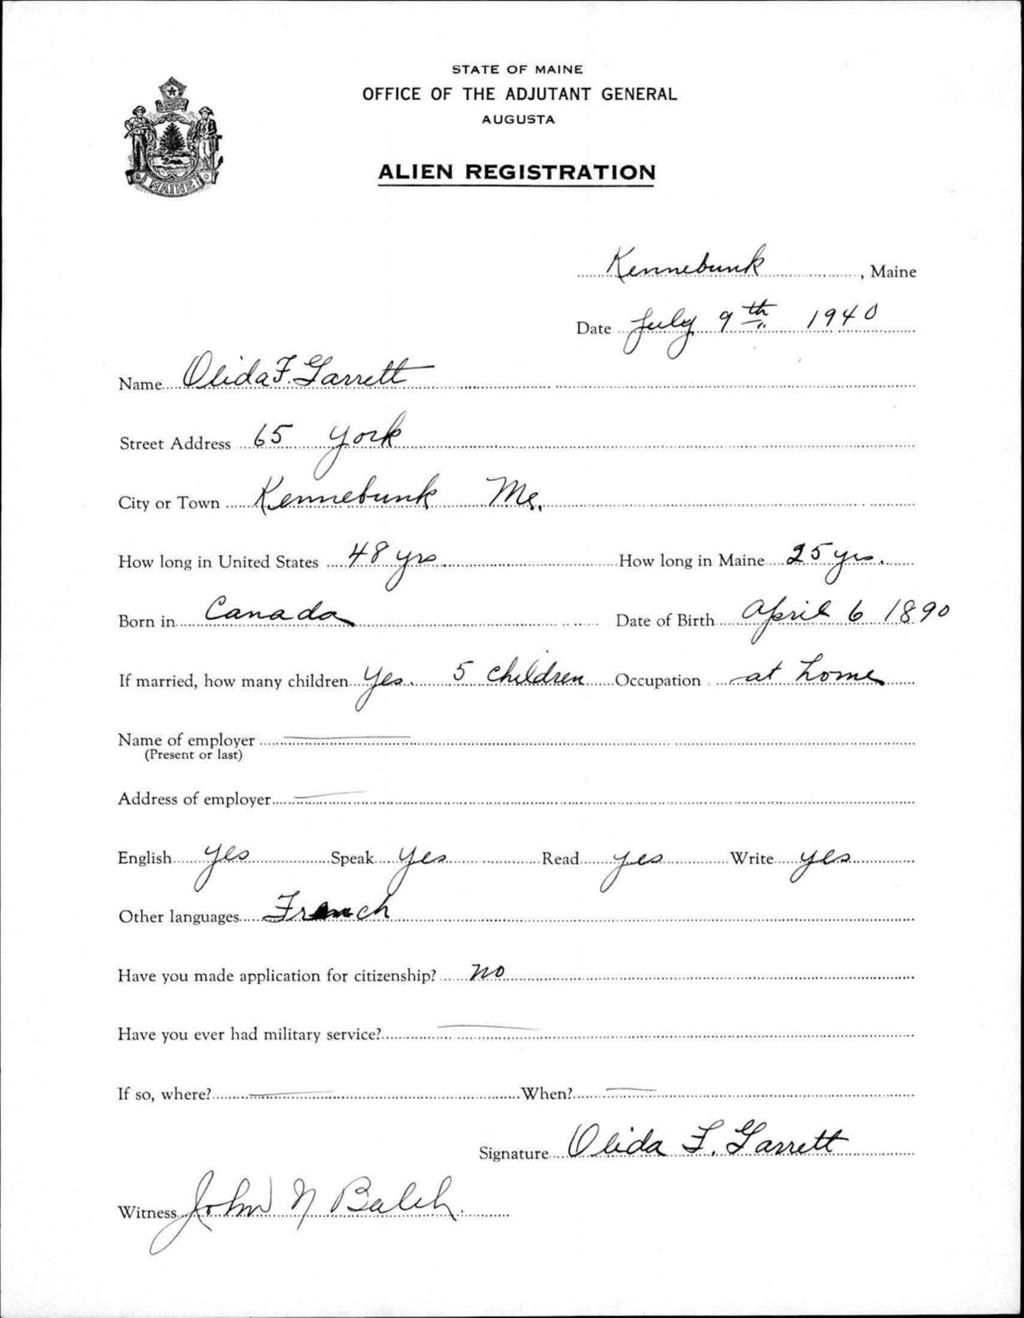 STATE OF MAINE
OFFICE OF THE ADJUTANT GENERAL
AUGUSTA
ALIEN REGISTRATION
MAINE
Kennebunk, Maine
Date July 9th 1940
Name Olida F. Garrett
Street Address 65 York
City or Town Kennebunk Me.
How long in United States 48 yrs. How long in Maine 25 yrs.
Born in Canada Date of Birth April 6 1890
If married, how many children Yes. 5 children Occupation at home
Name of employer
(Present or last)
Address of employer
English yes Speak yes Read yes Write yes
Other languages French
Have you made application for citizenship? no
Have you ever had military service?
If so, where? When?
Signature Olida F. Garrett
Witness John N Balch.